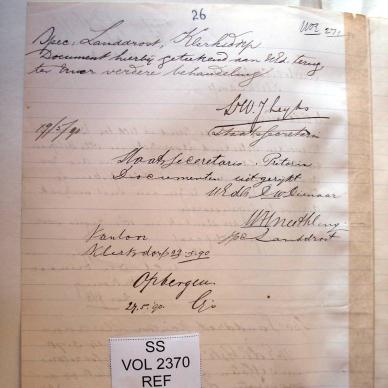 26
Spec. Landdrost, Klerksdorp
Document hierbij geteekend aan UEd. terug
ter Uwer verdere behandeling
Dr W. J. Leyds
Staatssecretaris
19/5/90
Staatssecretaris Pretoria
Documenten uitgereikt
UEdls D. W. Dienaar
Spec Landdrost
Kantoor
Klerksdorp 23.5.90
Opbergen
24.5.90.
SS
VOL 2370
REF